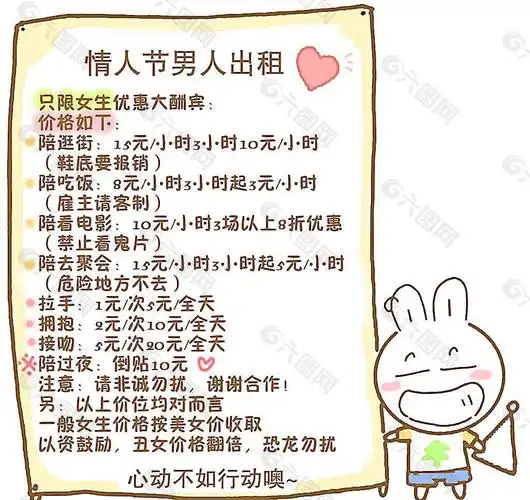 情人节男人出租
只限女生优惠大酬宾：
价格如下：
陪逛街：15元/小时3小时10元/小时
（鞋底要报销）
陪吃饭：8元/小时3小时起3元/小时
（雇主请客制）
陪看电影：10元/小时3场以上8折优惠
（禁止看鬼片）
陪去聚会：15元/小时3小时起5元/小时
（危险地方不去）
拉手：1元/次5元/全天
拥抱：2元/次10元/全天
接吻：5元/次20元/全天
※陪过夜：倒贴10元
注意：请非诚勿扰，谢谢合作！
另：以上价位均对而言
一般女生价格按美女价收取
以资鼓励，丑女价格翻倍，恐龙勿扰
心动不如行动噢~
六图网